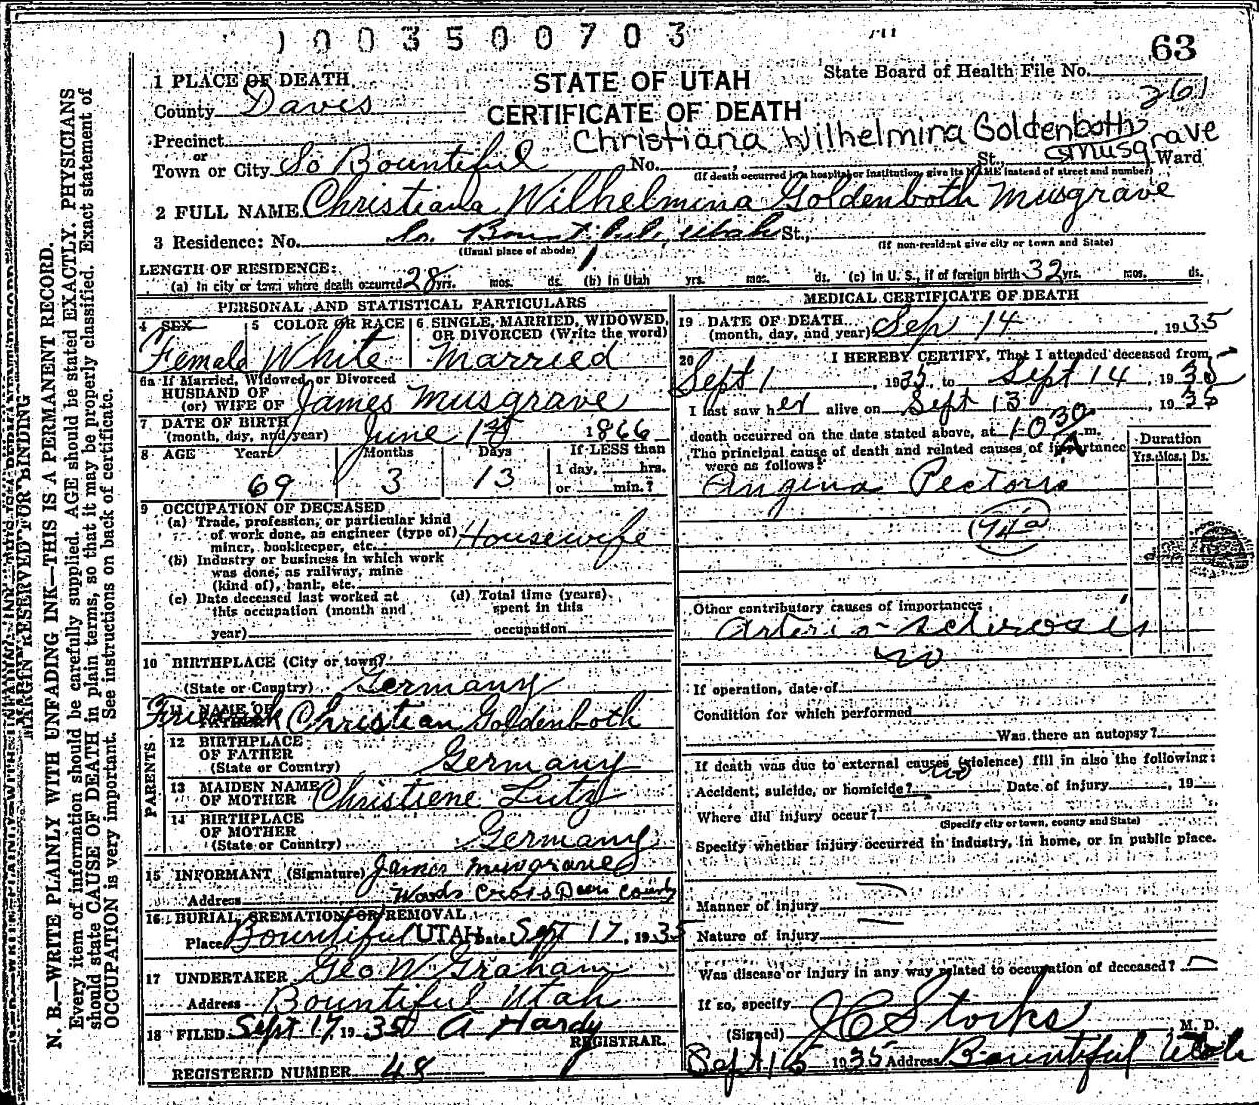 1003500703
63
STATE OF UTAH
CERTIFICATE OF DEATH
State Board of Health File No.
261
1 PLACE OF DEATH
County Davis
Precinct
Christiana Wilhelmina Goldenboth Musgrave
Town or City So Bountiful No. St., Ward
(If death occurred in a hospital or institution, give its NAME instead of street and number)
2 FULL NAME Christiana Wilhelmina Goldenboth Musgrave
3 Residence: No. So. Bountiful, Utah St.,
(Usual place of abode) (If non-resident give city or town and State)
LENGTH OF RESIDENCE:
(a) In city or town where death occurred 28 yrs. mos. ds. (b) In Utah yrs. mos. ds. (c) In U. S., if of foreign birth 32 yrs. mos. ds.
PERSONAL AND STATISTICAL PARTICULARS
4 SEX 5 COLOR OR RACE 6 SINGLE, MARRIED, WIDOWED, OR DIVORCED (Write the word)
Female White Married
6a If Married, Widowed, or Divorced
HUSBAND OF
(or) WIFE OF James Musgrave
7 DATE OF BIRTH
(month, day, and year) June 1st 1866
8 AGE Years Months Days If LESS than
1 day, hrs.
69 3 13 or min.?
9 OCCUPATION OF DECEASED
(a) Trade, profession, or particular kind
of work done, as engineer (type of)
miner, bookkeeper, etc. Housewife
(b) Industry or business in which work
was done, as railway, mine
(kind of), bank, etc.
(c) Date deceased last worked at
this occupation (month and
year)
(d) Total time (years)
spent in this
occupation
10 BIRTHPLACE (City or town)
(State or Country) Germany
11 NAME OF
Christian Goldenboth
12 BIRTHPLACE
OF FATHER
(State or Country) Germany
PARENTS
13 MAIDEN NAME
OF MOTHER Christiene Lutz
14 BIRTHPLACE
OF MOTHER
(State or Country) Germany
15 INFORMANT (Signature) James Musgrave
Address Woods Cross Davis County
16 BURIAL, CREMATION OR REMOVAL
Place Bountiful UTAH Date Sept 17, 1935
17 UNDERTAKER Geo W. Graham
Address Bountiful Utah
18 FILED Sept 17, 1935 A Hardy
REGISTRAR.
REGISTERED NUMBER 48
MEDICAL CERTIFICATE OF DEATH
19 DATE OF DEATH
(month, day, and year) Sep 14, 1935
20 I HEREBY CERTIFY, That I attended deceased from
Sept 1, 1935, to Sept 14, 1935
I last saw her alive on Sept 13, 1935
death occurred on the date stated above, at 10 30 A m.
The principal cause of death and related causes of importance
were as follows:
Duration
Yrs. Mos. Ds.
Angina Pectoris
94a
Other contributory causes of importance:
Arterio-sclerosis
no
If operation, date of
Condition for which performed
Was there an autopsy?
If death was due to external causes (violence) fill in also the following:
no
Accident, suicide, or homicide? Date of injury , 19
Where did injury occur?
(Specify city or town, county and State)
Specify whether injury occurred in industry, in home, or in public place.
Manner of injury
Nature of injury
Was disease or injury in any way related to occupation of deceased?
If so, specify
(Signed) J C Stocks M. D.
Sept 15 1935 Address Bountiful Utah
MARGIN RESERVED FOR BINDING
N. B.—WRITE PLAINLY WITH UNFADING INK—THIS IS A PERMANENT RECORD.
Every item of information should be carefully supplied. AGE should be stated EXACTLY. PHYSICIANS
should state CAUSE OF DEATH in plain terms, so that it may be properly classified. Exact statement of
OCCUPATION is very important. See instructions on back of certificate.